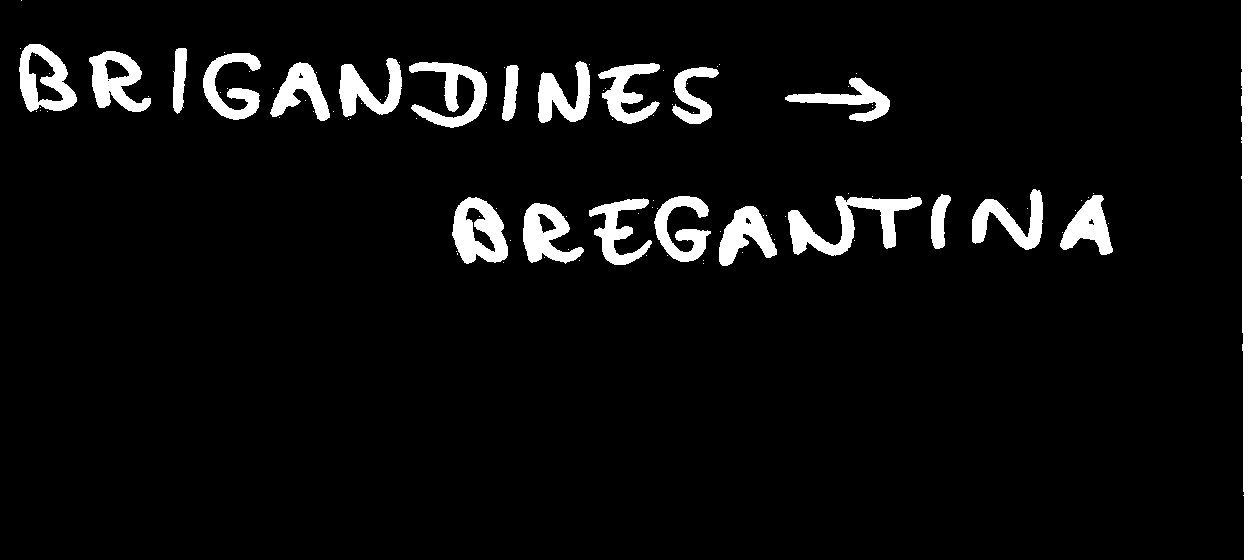 BRIGANDINES →
BREGANTINA